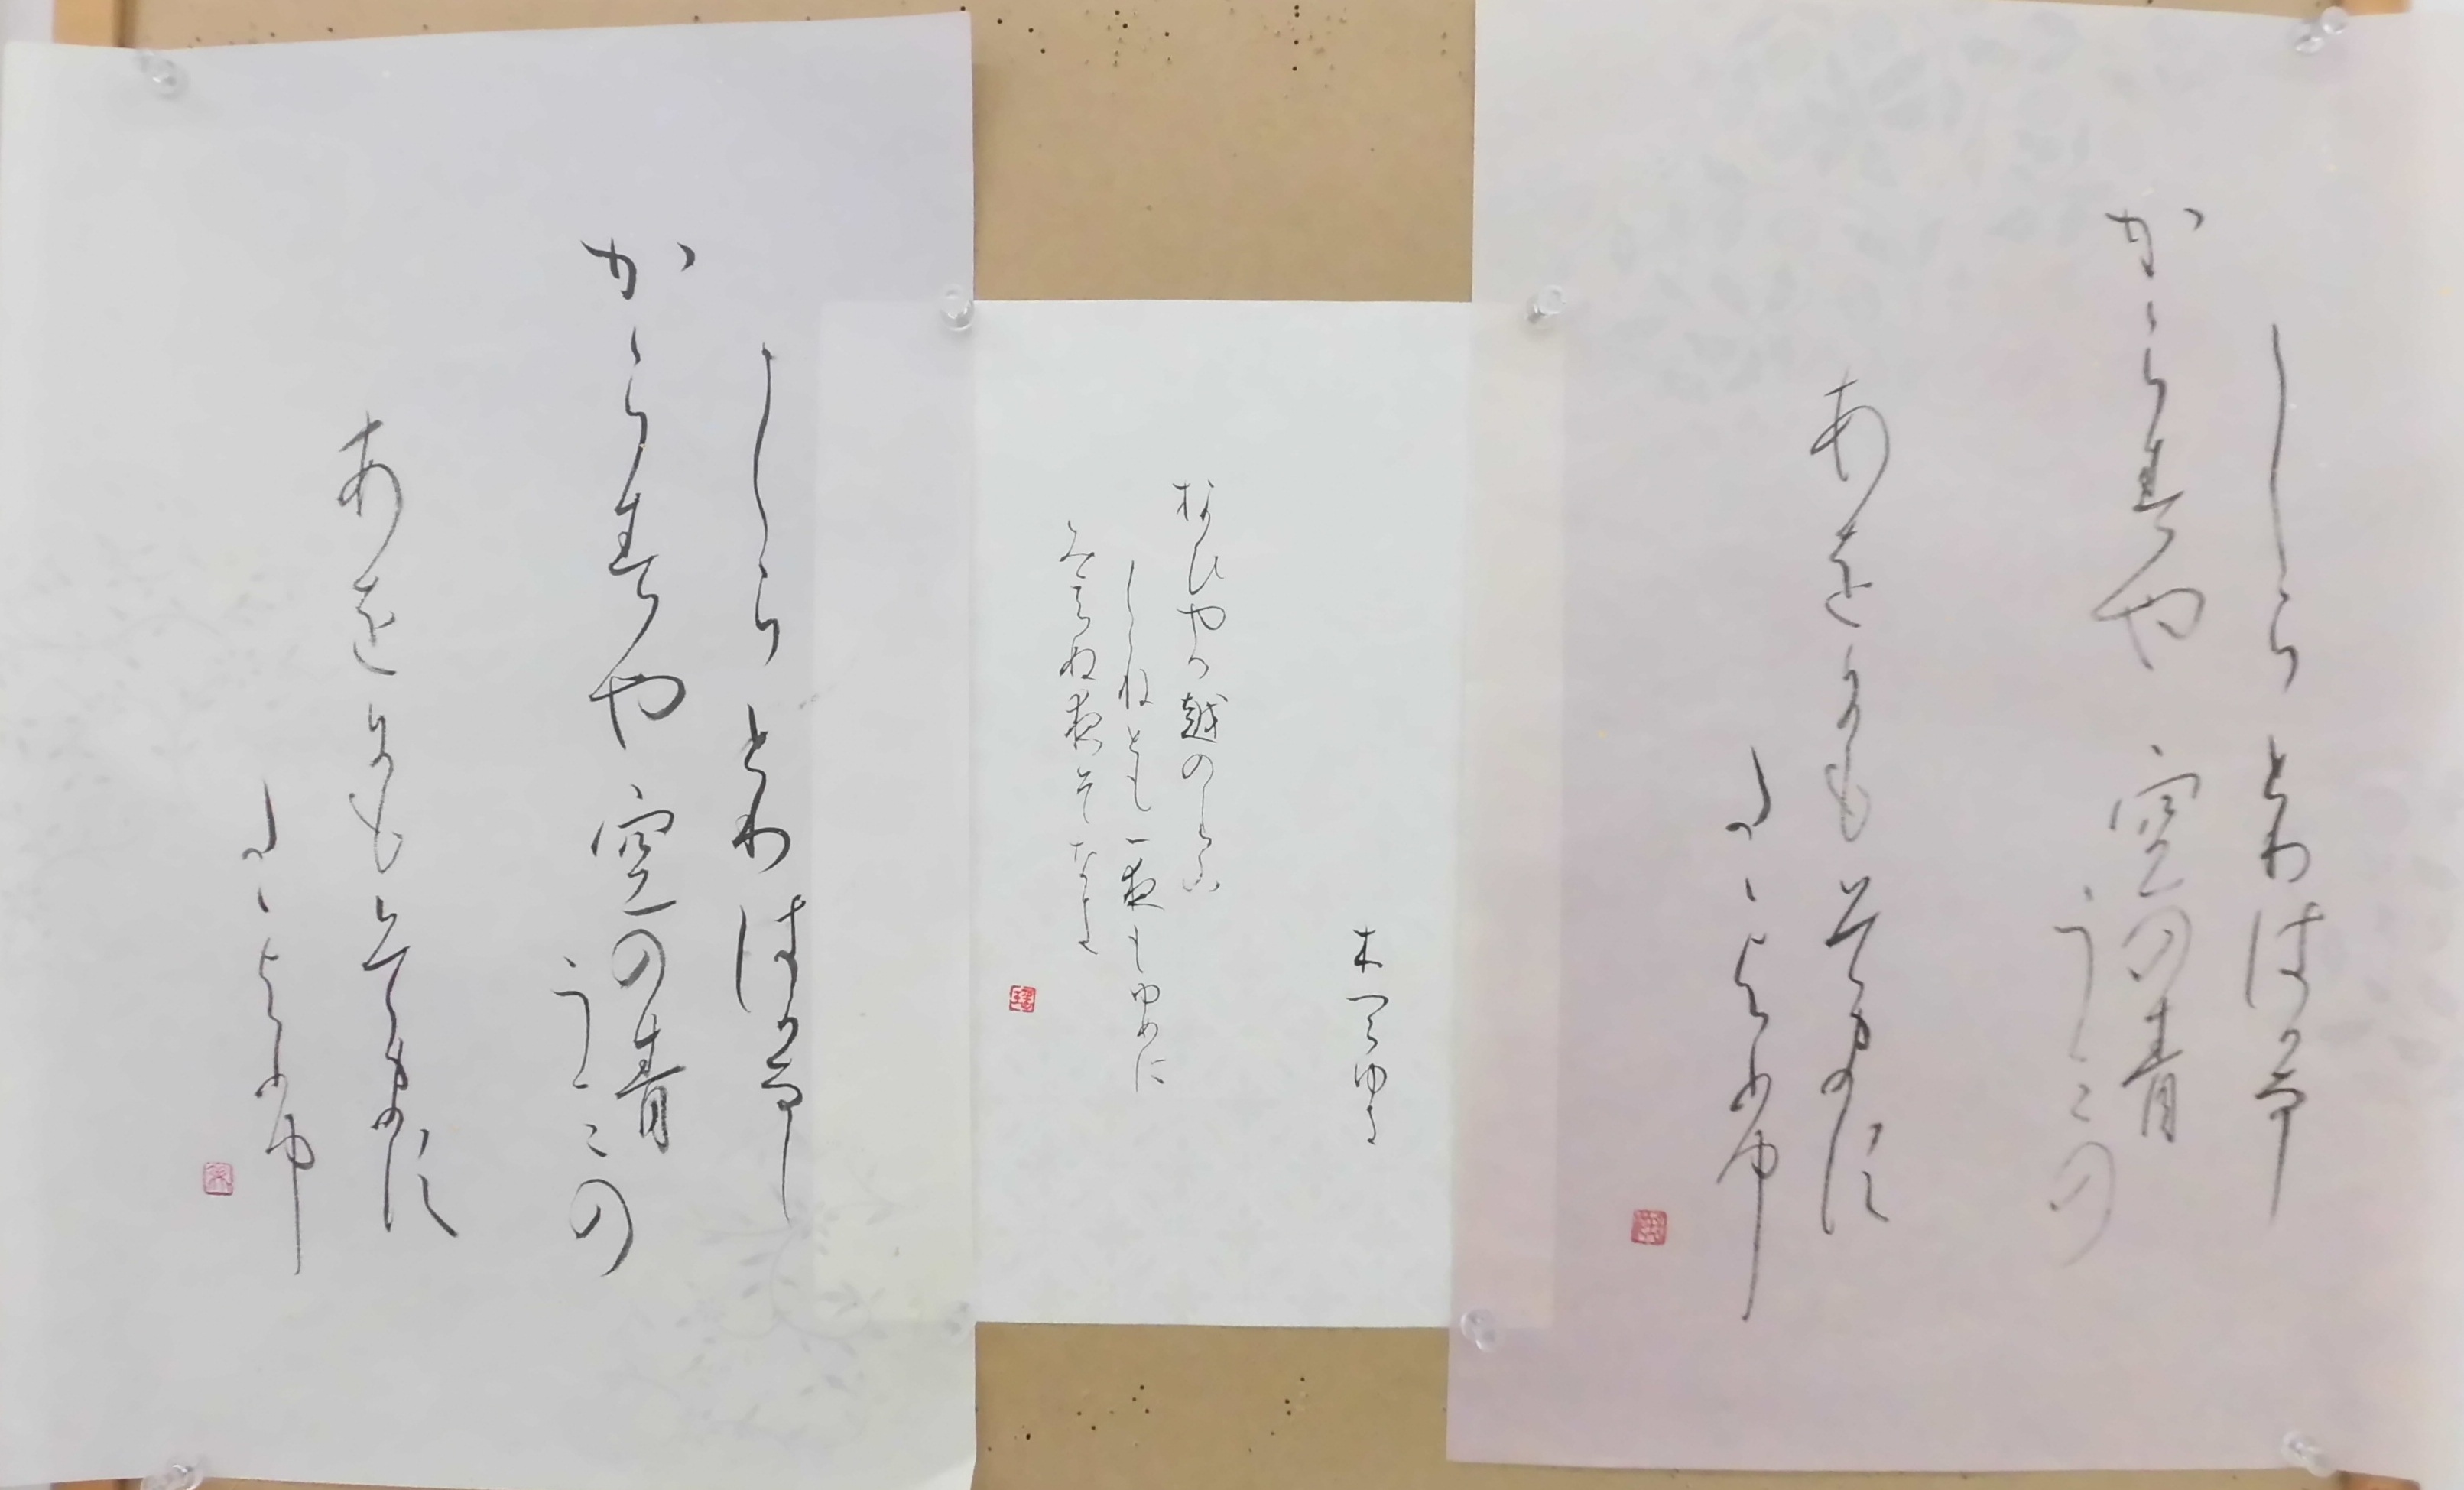 しらとりはかなし
からすや空の青
うみの
あをにもそますた
たよふ
木つらゆき
おもひやる越のしら山
しらねとも一夜もゆめに
こえぬ夜そなき
しらとりはかなし
からすや空の青
うみの
あをにもそます
たゝよふ